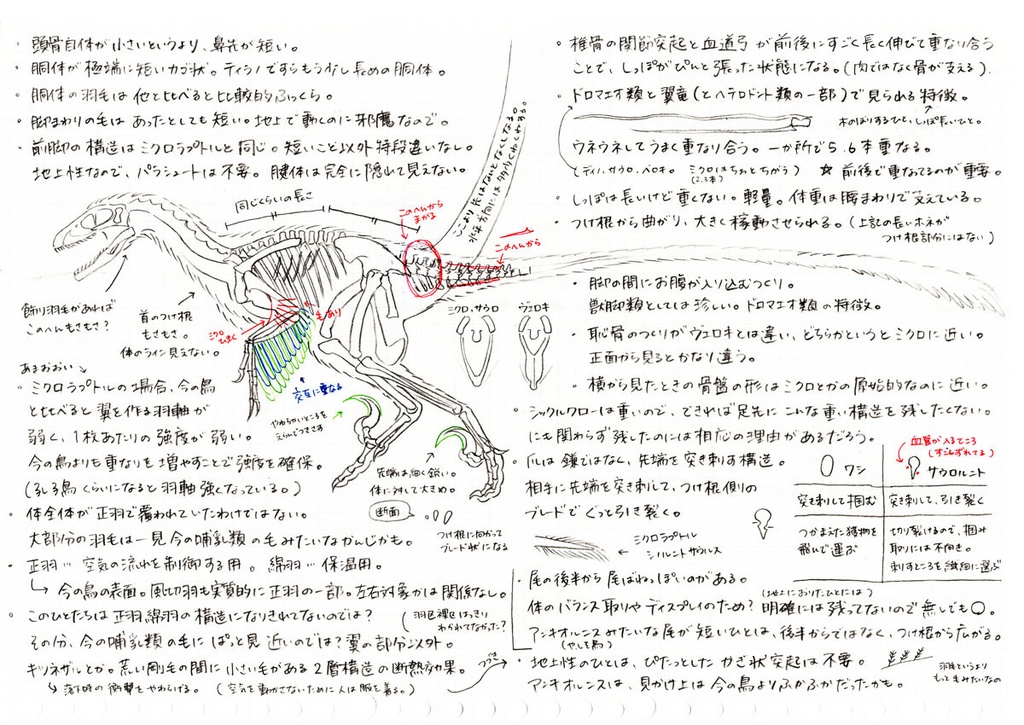 ・頭骨自体が小さいというより、鼻先が短い。
・胴体が極端に短いカゴ状。ティラノですらもう少し長めの胴体。
・胴体の羽毛は他と比べると比較的ふっくら。
・脚まわりの毛はあったとしても短い。地上で動くのに邪魔なので。
・前脚の構造はミクロラプトルと同じ。短いこと以外特段違いなし。
地上性なので、パラシュートは不要。腱体は完全に隠れて見えない。
同じくらいの長さ
このへんからまがる
ここより先はほとんどなくてもなる。
このへんから
飾り羽毛があれば
このへんもさもさ?
首のつけ根
もさもさ。
体のライン見えない。
ミクロ
毛あり
交互に重なる
やわらかいところを
えらんでつきさす
先端は細く鋭い。
体に対して大きめ。
断面
つけ根に向かって
ブレード状になる
あまおおい
・ミクロラプトルの場合、今の鳥
と比べると翼を作る羽軸が
弱く、1枚あたりの強度が弱い。
今の鳥よりも重なりを増やすことで強度を確保。
(孔子鳥くらいになると羽軸強くなっている。)
・体全体が正羽で覆われていたわけではない。
大部分の羽毛は一見今の哺乳類の毛みたいなかんじかも。
・正羽…空気の流れを制御する用。綿羽…保温用。
↳今の鳥の表面。風切羽も実質的に正羽の一部。左右対象かは関係なし。
・このひとたちは正羽綿羽の構造になりきれてないのでは?
その分、今の哺乳類の毛にぱっと見近いのでは?翼の部分以外。
キツネザルとか。荒い剛毛の間に小さい毛がある2層構造の断熱効果。
↳落下時の衝撃をやわらげる。(空気を動かさないために人は服を着る。)
・椎骨の関節突起と血道弓が前後にすごく長く伸びて重なり合う
ことで、しっぽがぴんと張った状態になる。(肉ではなく骨が支える)
・ドロマエオ類と翼竜(とヘテロドント類の一部)で見られる特徴。
木のぼりするひと、しっぽ長いひと。
ウネウネしてうまく重なり合う。一か所で5.6本重なる。
(ディノ、サウロ、ベロキ。ミクロはちょっとちがう)
(2.3本)
☆前後で重なってるのが重要。
・しっぽは長いけど重くない。軽量。体重は腰まわりで支えている。
・つけ根から曲がり、大きく稼動させられる。(上記の長いホネが
つけ根部分にはない)
・脚の間にお腹が入り込むつくり。
獣脚類としては珍しい。ドロマエオ類の特徴。
・恥骨のつくりがヴェロキとは違い、どちらかというとミクロに近い。
正面から見るとかなり違う。
・横から見たときの骨盤の形はミクロとかの原始的なのに近い。
ミクロ、サウロ
ヴェロキ
・シックルクローは重いので、できれば足先にこんな重い構造を残したくない。
にも関わらず残したのには相応の理由があるだろう。
・爪は鎌ではなく、先端を突き刺す構造。
相手に先端を突き刺して、つけ根側の
ブレードでぐっと引き裂く。
血管が入るところ
(すこしずれてる)
ワシ
サウロルニト
突き刺して掴む
突き刺して、引き裂く
つかまえた獲物を
飛んで運ぶ
切り裂けるので、掴み
取りには不向き。
刺すところを繊細に選ぶ
ミクロラプトル
シノルニトサウルス
・尾の後半から尾ばねっぽいのがある。
(地上におりたひとには)
体のバランス取りやディスプレイのため?明確には残ってないので無しでも○。
アンキオルニスみたいな尾が短いひとは、後半からではなく、つけ根から広がる。
・地上性のひとは、ぴたっとしたかぎ状突起は不要。
アンキオルニスは、見かけ上は今の鳥よりふかふかだったかも。
羽毛というより
もっと毛みたいなの